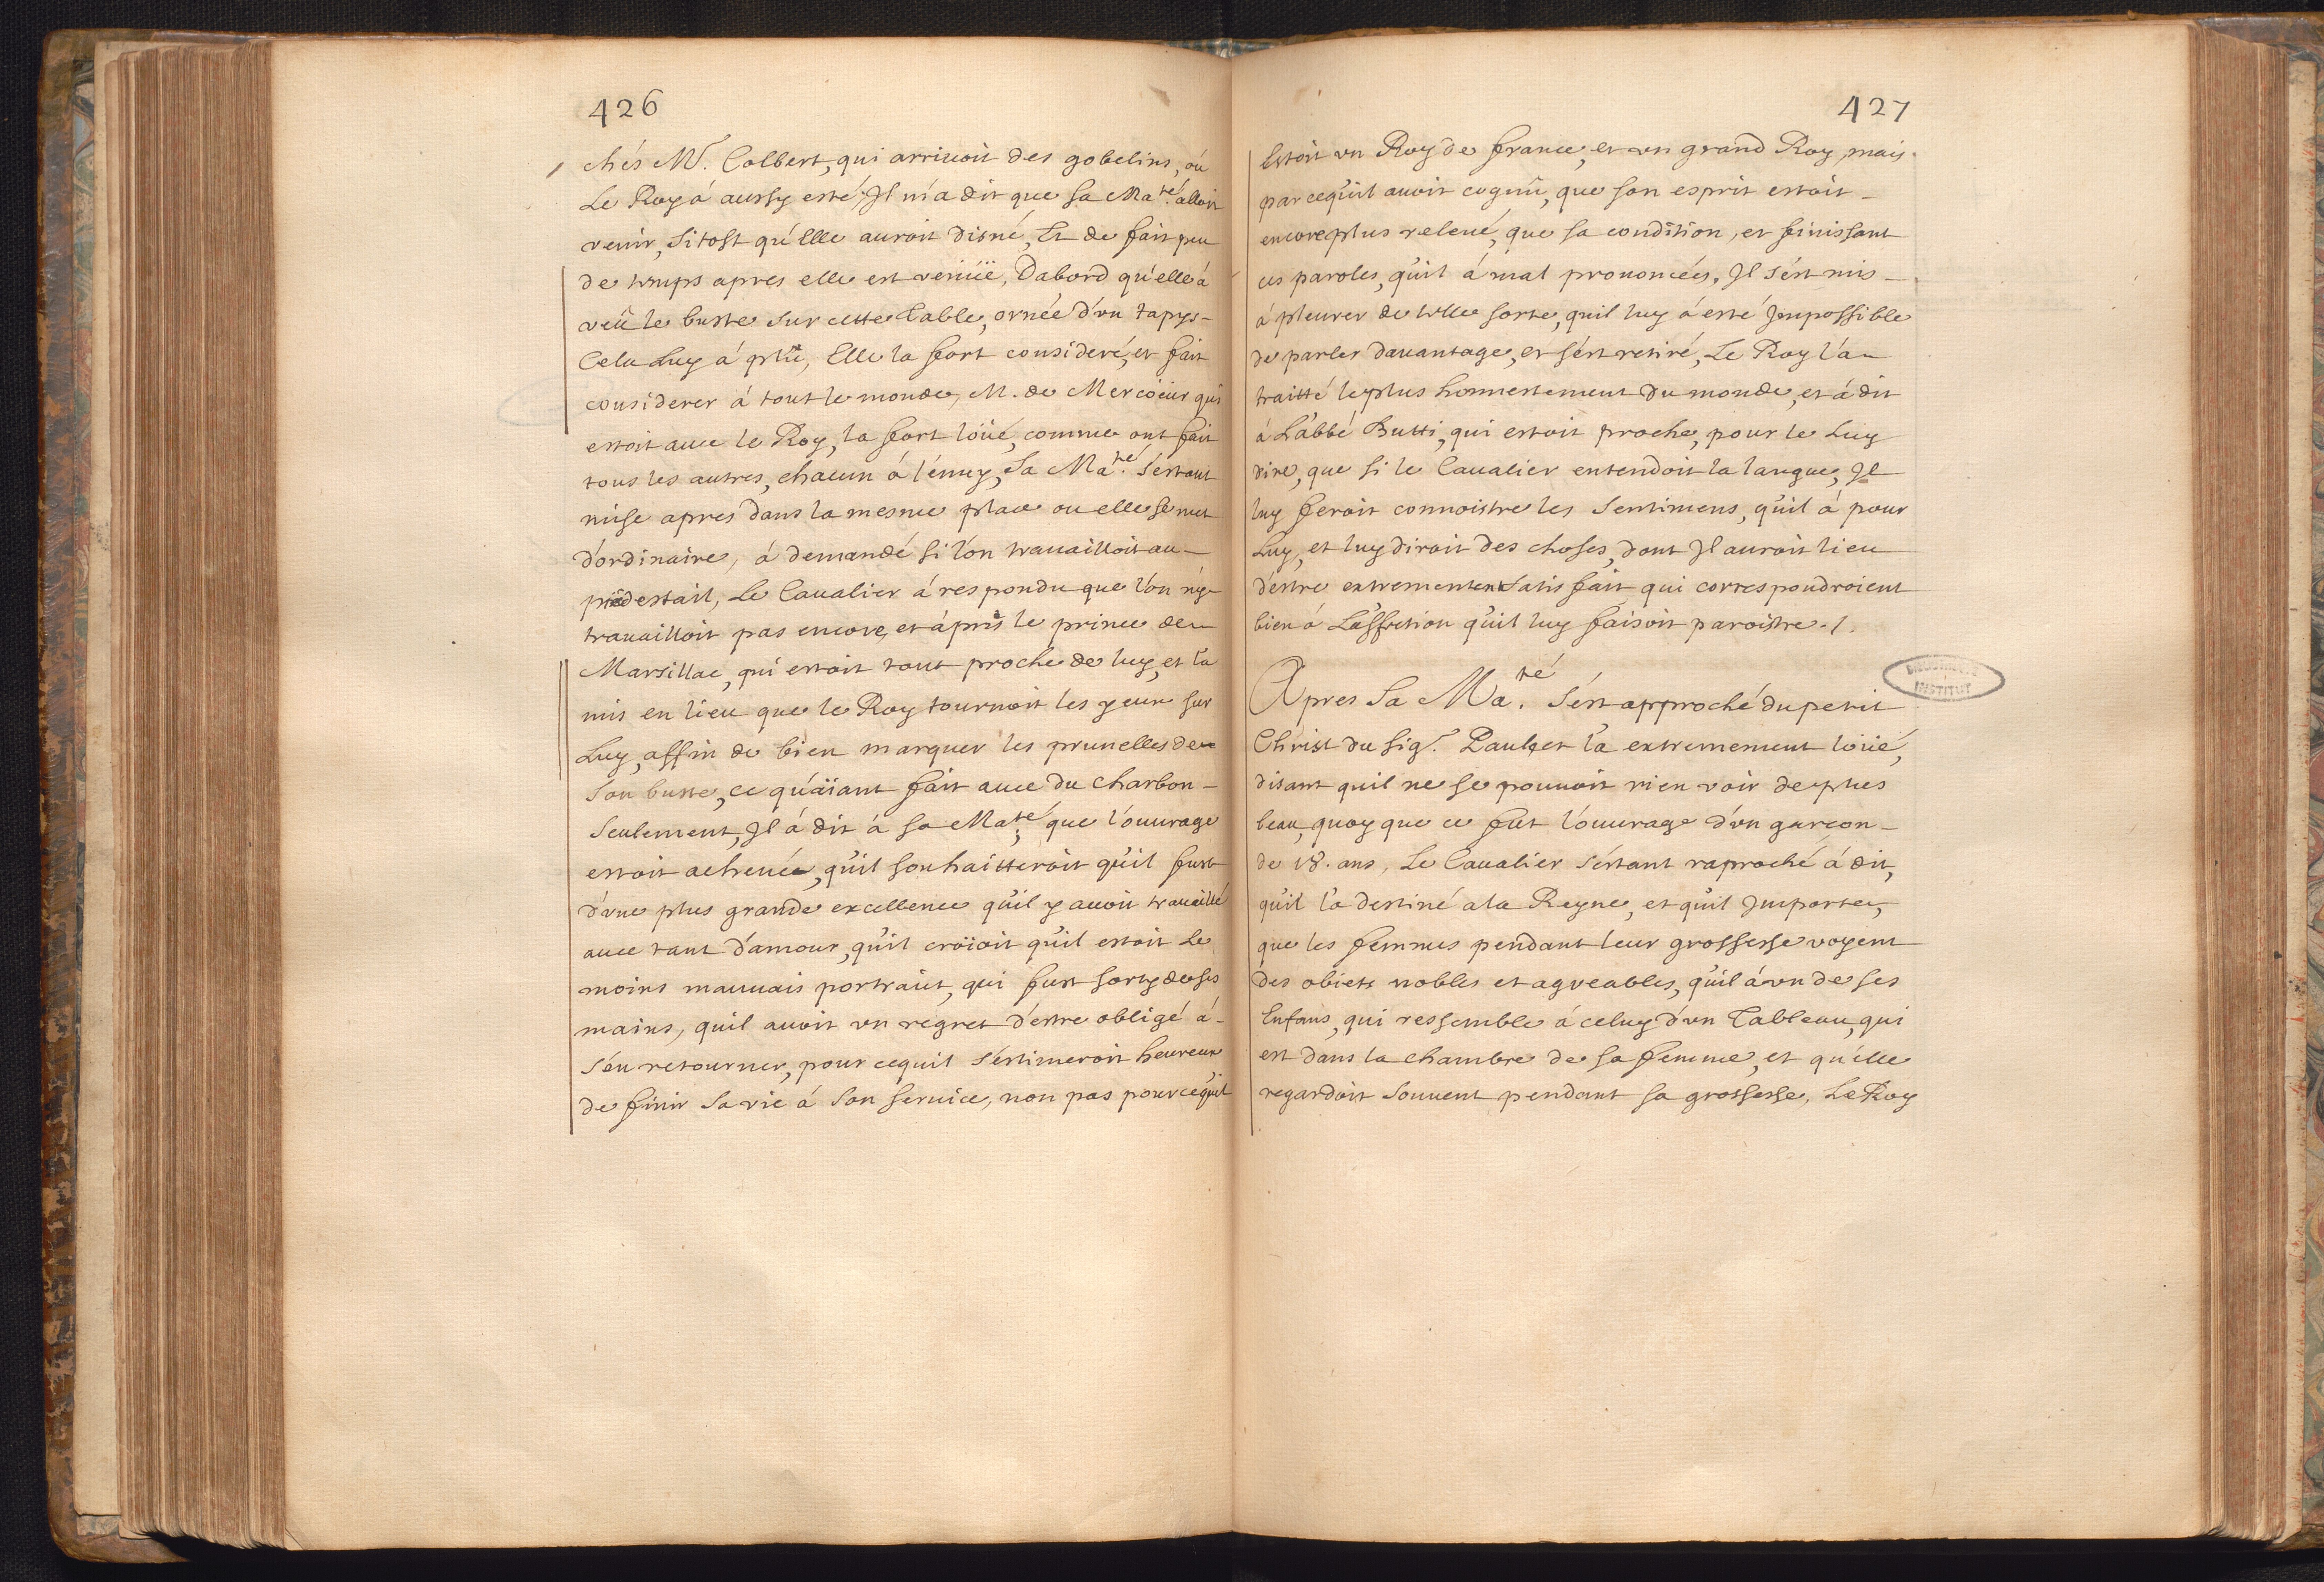 426
chés Mr. Colbert, qui arriuoit des gobelins, où
Le Roy á aussy esté, Il m'a dit que Sa Maté. alloit
venir, Sitost qu'Elle auroit disné, Et de fait peu
de temps apres elle est venüe, Dabord qu'elle á
veû le buste Sur cette Table, ornée d'un tapys-
Cela Luy á plû, Elle la fort consideré, et fait
considerer á tout le monde, M. de Mercoeur qui
estoit auec le Roy, la fort loüé, comme ont fait
tous les autres, chacun á l'énuy, Sa Maté. S'estant
mise apres dans la mesme place ou elle se met
d'ordinaire, á demandé Si l'on trauailloit au-
piédestail, Le Caualier á respondu que l'on n'y-
trauailloit pas encore, et á pris le prince de-
Marsillac, qui estoit tout proche de luy, et l'a
mis en lieu que le Roy tournoit les yeux sur
Luy, affin de bien marquer les prunelles de-
Son buste, ce qu'aïant fait auec du charbon-
Seulement, Il á dit á Sa Maté. que l'ouurage
estoit acheué, qu'il souhaitteroit qu'il fust
d'une plus grande excellence qu'il y auoit trauaillé
auec tant d'amour, qu'il croïoit qu'il estoit Le
moins mauuais portrait, qui fust sorty de ses
mains, quil auoit un regret d'estre obligé á-
S'en retourner, pour cequil S'estimeroit heureux
de finir Sa vie á Son Seruice, non pas pour cequ'il
427
Estoit un Roy de france, et un grand Roy, mais.
parcequ'il auoit cognû, que son esprit estoit-
encore plus releué, que sa condition, et finissant
ces paroles, qu'il á mal prononcées, Il s'est mis-
á pleurer de telle sorte, quil luy á esté Impossible
de parler dauantage, et s'est retiré, Le Roy l'a-
traitté le plus honnestement du monde, et á dit
á L'abbé Butti, qui estoit proche, pour le Luy
dire, que si le Caualier entendoit la langue, Il
luy feroit connoistre les Sentimens, qu'il á pour
Luy, et luy diroit des choses, dont Il auroit lieu
d'estre extrement Satisfait qui correspondroient
bien á L'affection qu'il luy faisoit paroistre./.
Apres Sa Maté. S'est approché du petit
Christ du Sigr. Paul, et l'a extremement loüé,
disant quil ne se pouuoit rien voir de plus
beau, quoy que ce fut l'ouurage d'un garçon-
de 18. ans, Le Caualier s'estant raproché á dit,
qu'il l'a destiné a la Reyne, et qu'il Importe,
que les femmes pendant leur grossesse voyent
des obiets nobles et agreables, qu'il á un de ses
Enfans, qui ressemble á celuy d'un Tableau, qui
est dans la chambre de sa femme, et qu'elle
regardoit Souuent pendant sa grossesse, Le Roy
INSTITUT